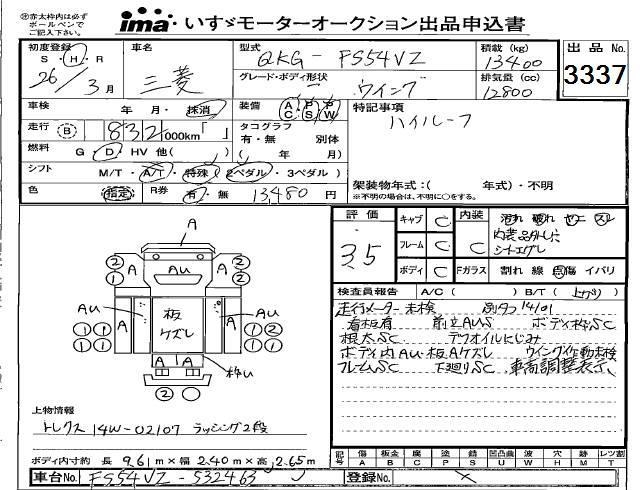 ㊟赤太枠内は必ず
ボールペンで
ご記入下さい。
ima いすゞモーターオークション出品申込書
初度登録 S・H・R
26/3月
車名 三菱
型式 QKG - FS54VZ
グレード・ボディ形状 ウイング
積載 (kg) 13400
排気量 (cc) 12800
出品No. 3337
車検 年・月・抹消
装備 A P P C S W
特記事項
ハイルーフ
走行 B 832,000km「 」
タコグラフ 有・無 別体
( 年 月)
燃料 G・D・HV 他( )
シフト M/T・A/T・特殊(2ペダル・3ペダル)
架装物年式:( 年式)・不明
※不明の場合は、不明に○をする。
色 指定 R券 有・無 13,480 円
評価 3.5
キャブ C
フレーム C
ボディ C
内装 C
汚れ 破れ
内装品外し穴
シートエグレ
Fガラス 割れ 線 点傷 イバリ
検査員報告 A/C( ) B/T( )
走行メーター未検 別タコ14/01
看板有 前立AUS ボデー枠SC
根太SC デフオイルにじみ
ボディ内AU・板Aケズレ ウイング作動未検
フレームSC 下廻りSC 車高調整表示
A
② A Au A ②
① A A ①
Au Au
A 板ケズレ A
①① ①②
①① ①②
A A
枠い
②
上物情報
トレクス 14W-02107 ラッシング2段
ボディ内寸約 長 9.61m×幅 2.40m×高 2.65m
記号 傷 A 板金 B 腐 C 塗 P 錆 S 凹凸曲 U 波 W 穴 H 跡 M リア3面 T
車台No. FS54VZ-532463
登録No. ×